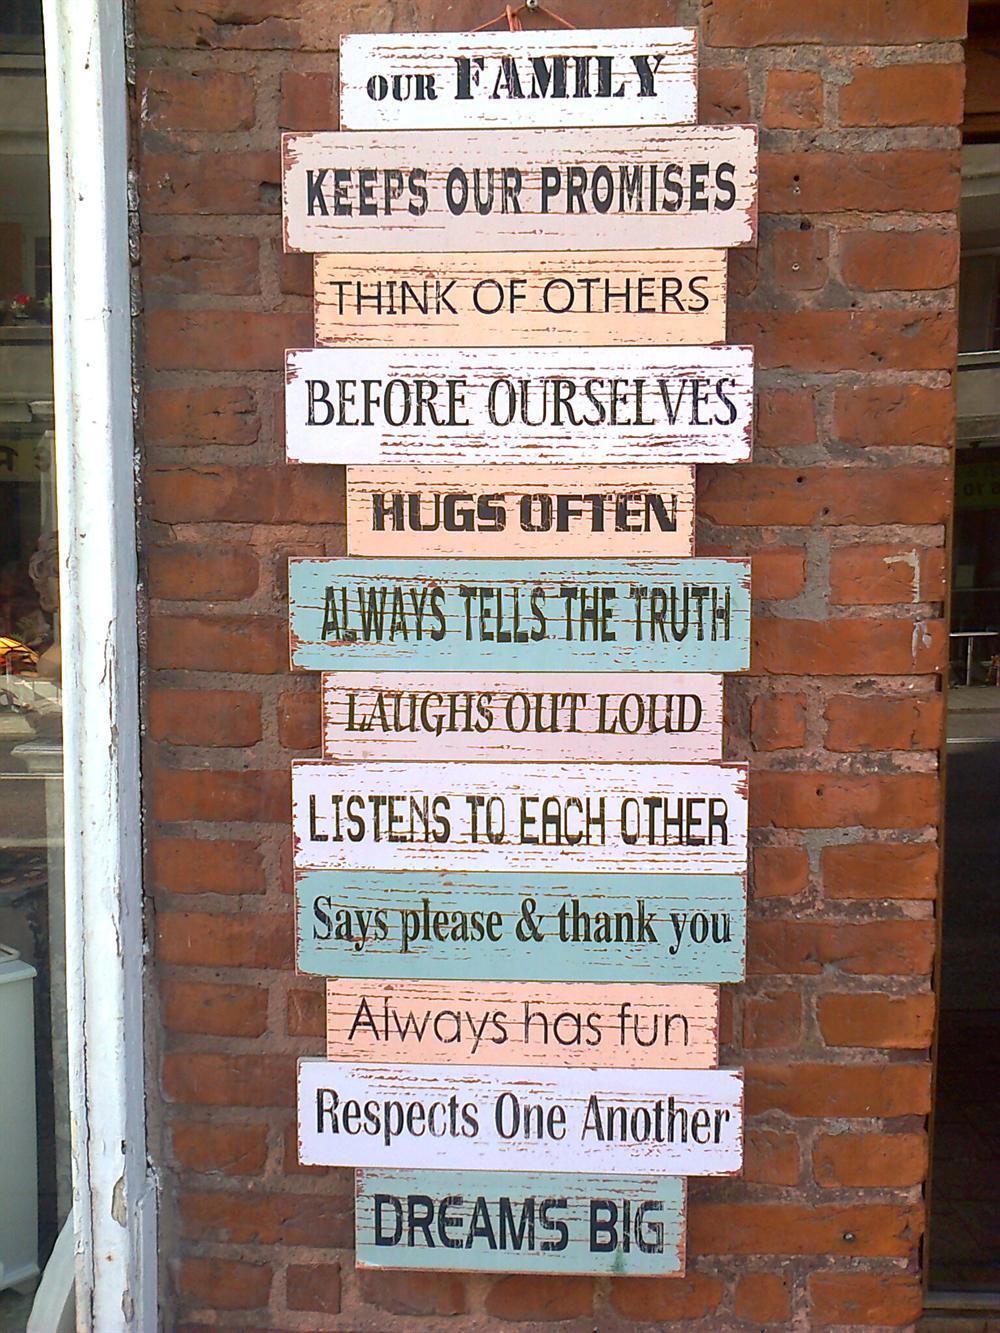 OUR FAMILY
KEEPS OUR PROMISES
THINK OF OTHERS
BEFORE OURSELVES
HUGS OFTEN
ALWAYS TELLS THE TRUTH
LAUGHS OUT LOUD
LISTENS TO EACH OTHER
Says please & thank you
Always has fun
Respects One Another
DREAMS BIG